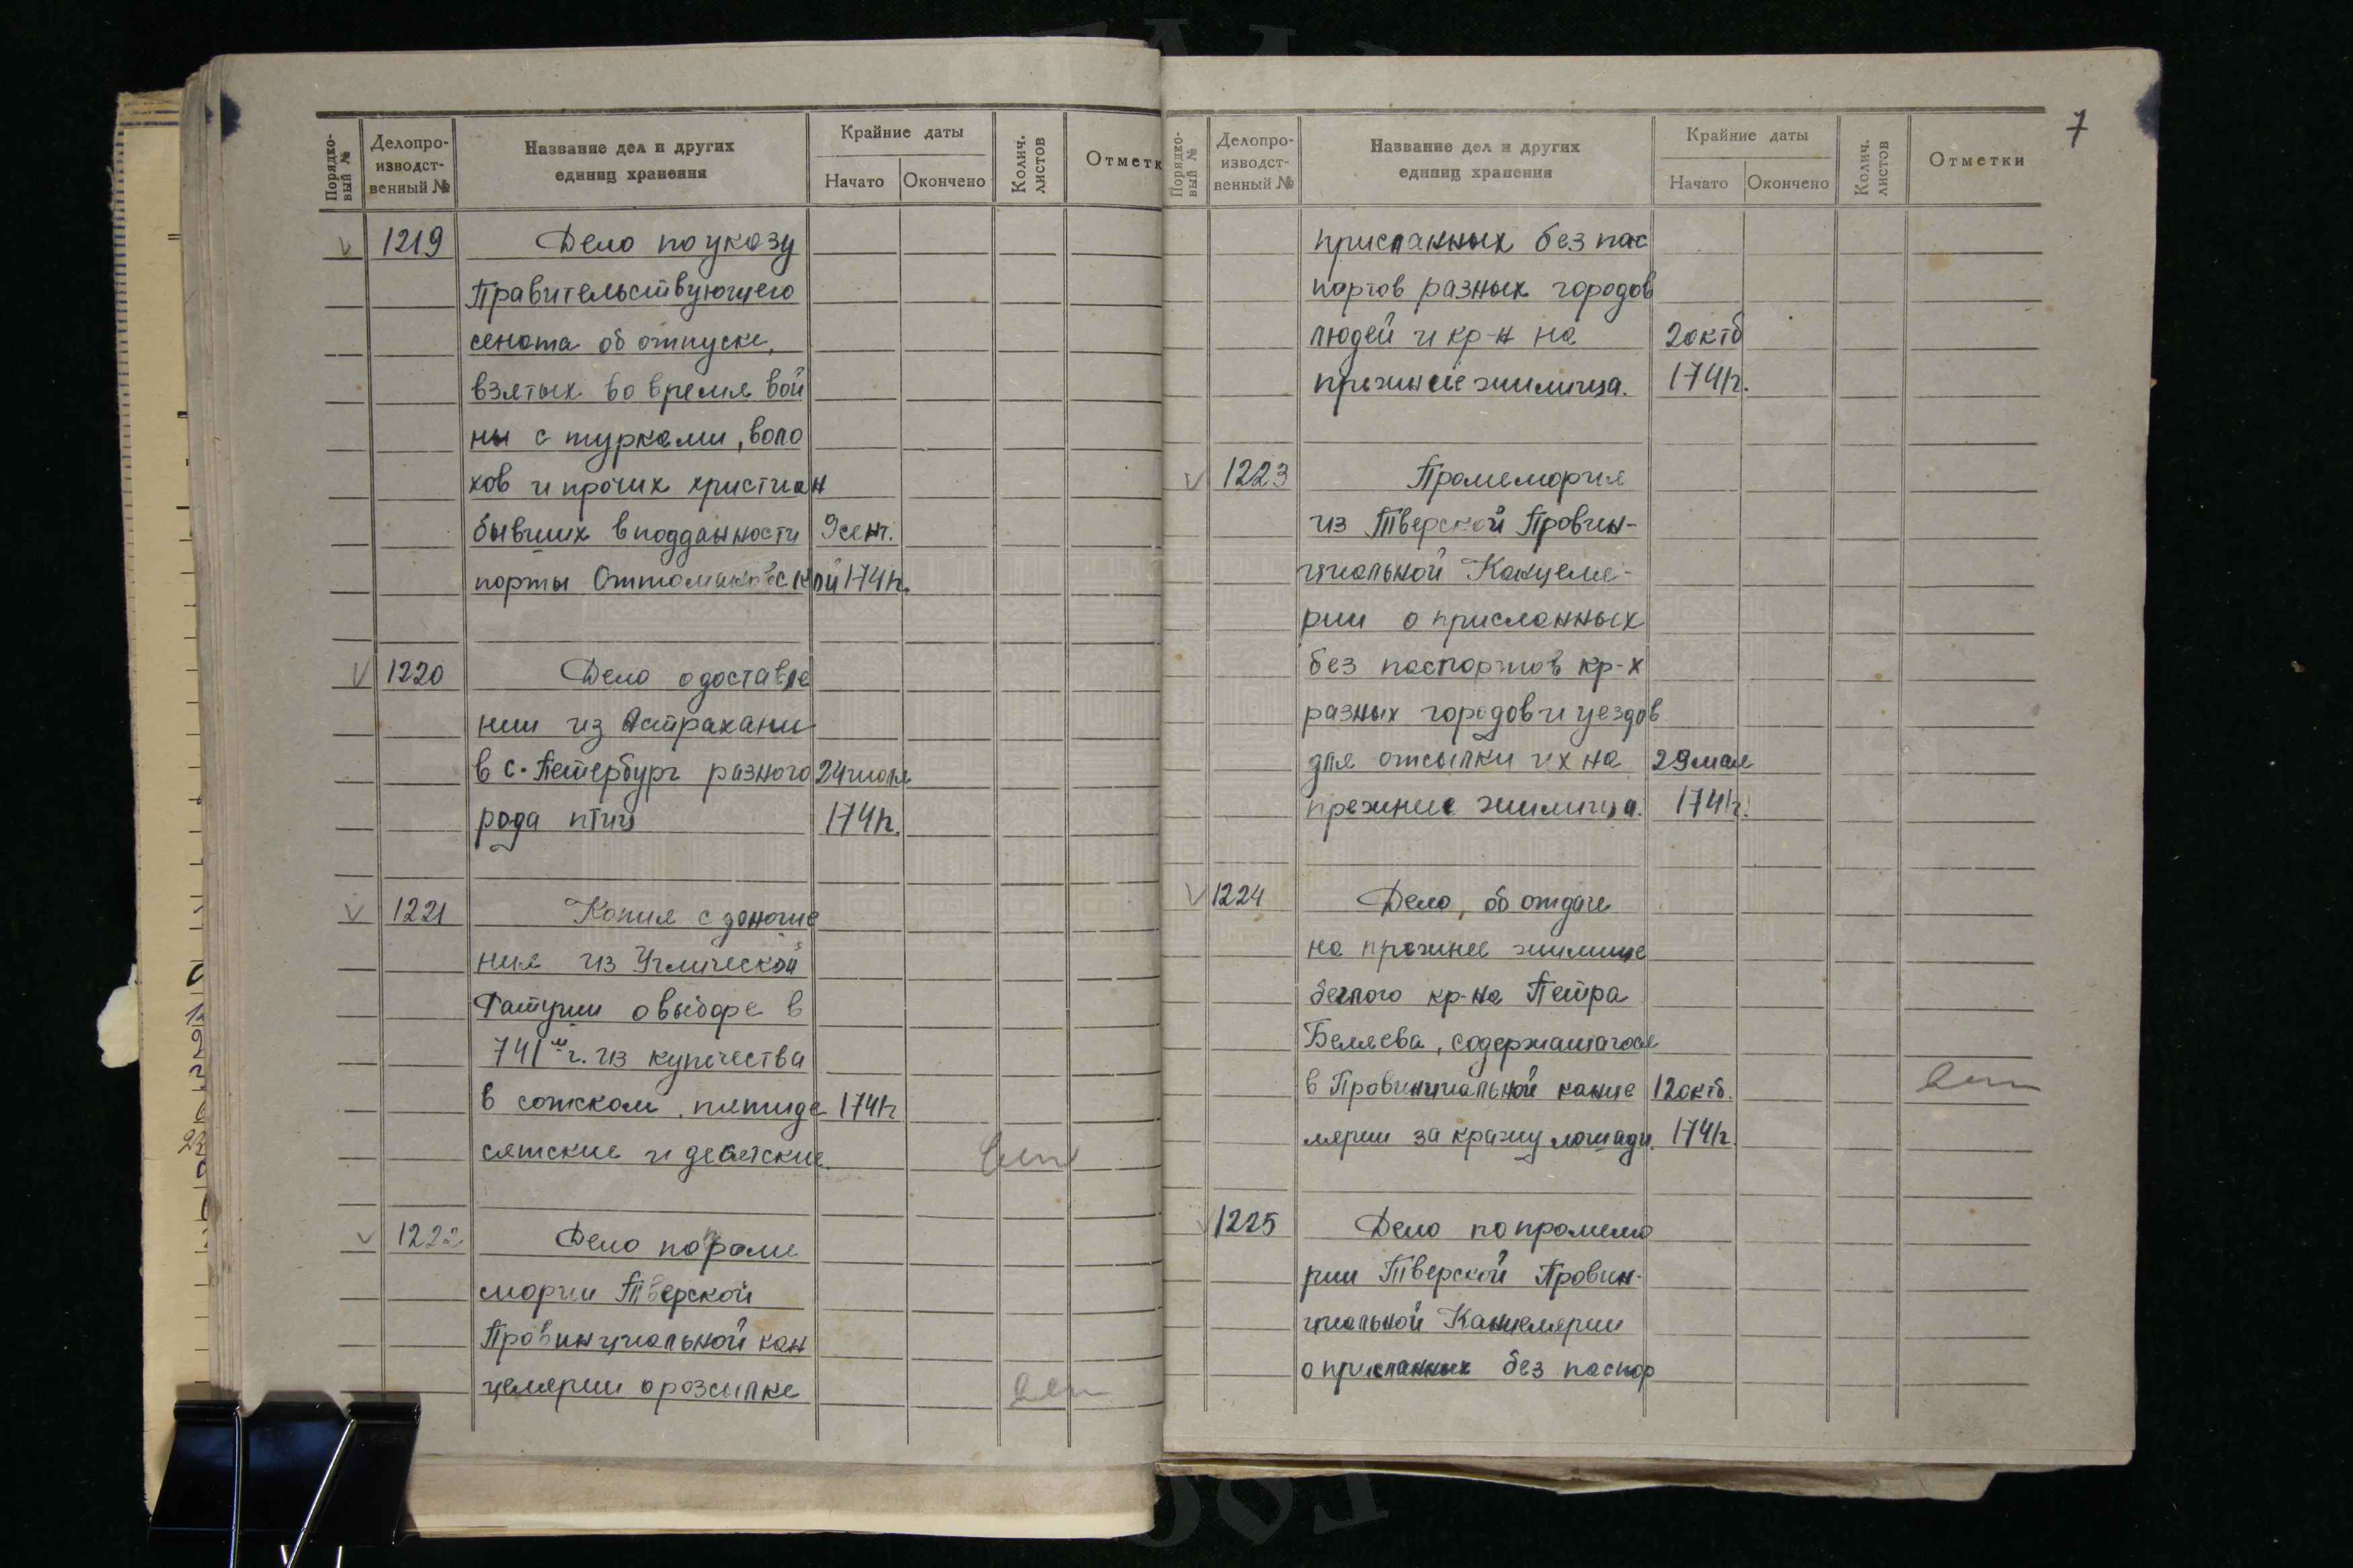 Порядко-
вый №
Делопро-
изводст-
венный №
Название дел и других
единиц хранения
Крайние даты
Начато
Окончено
Колич.
листов
Отметк
1219 Дело по указу
Правительствующего
сената об отпуске,
взятых во время вой
ны с турками, воло
хов и прочих христиан
бывших в подданности 9 сент.
порты Оттоманской 1741г.
1220 Дело о доставле
нии из Астрахани
в С. Петербург разного 24 июля
рода птиц 1741г.
1221 Копия с доноше
ния из Угличской
Ратуши о выборе в
741 м г. из купечества
в сотском, пятиде 1741г
сятские и десятские.
1222 Дело по проме
мории Тверской
Провинциальной кан
целярии о розсылке
7
Порядко-
вый №
Делопро-
изводст-
венный №
Название дел и других
единиц хранения
Крайние даты
Начато
Окончено
Колич.
листов
Отметки
присланных без пас
портов разных городов
людей и кр-н на 2 октб
прежние жилища. 1741г.
1223 Промемория
из Тверской Провин-
циальной Канцеля-
рии о присланных
без паспортов кр-х
разных городов и уездов
для отсылки их на 29 мая
прежние жилища. 1741г.
1224 Дело, об отдаче
на прежнее жилище
беглого кр-на Петра
Беляева, содержашагося
в Провинциальной канце 12 октб.
лярии за кражу лошади. 1741г.
1225 Дело по промемо
рии Тверской Провин-
циальной Канцелярии
о присланных без паспор